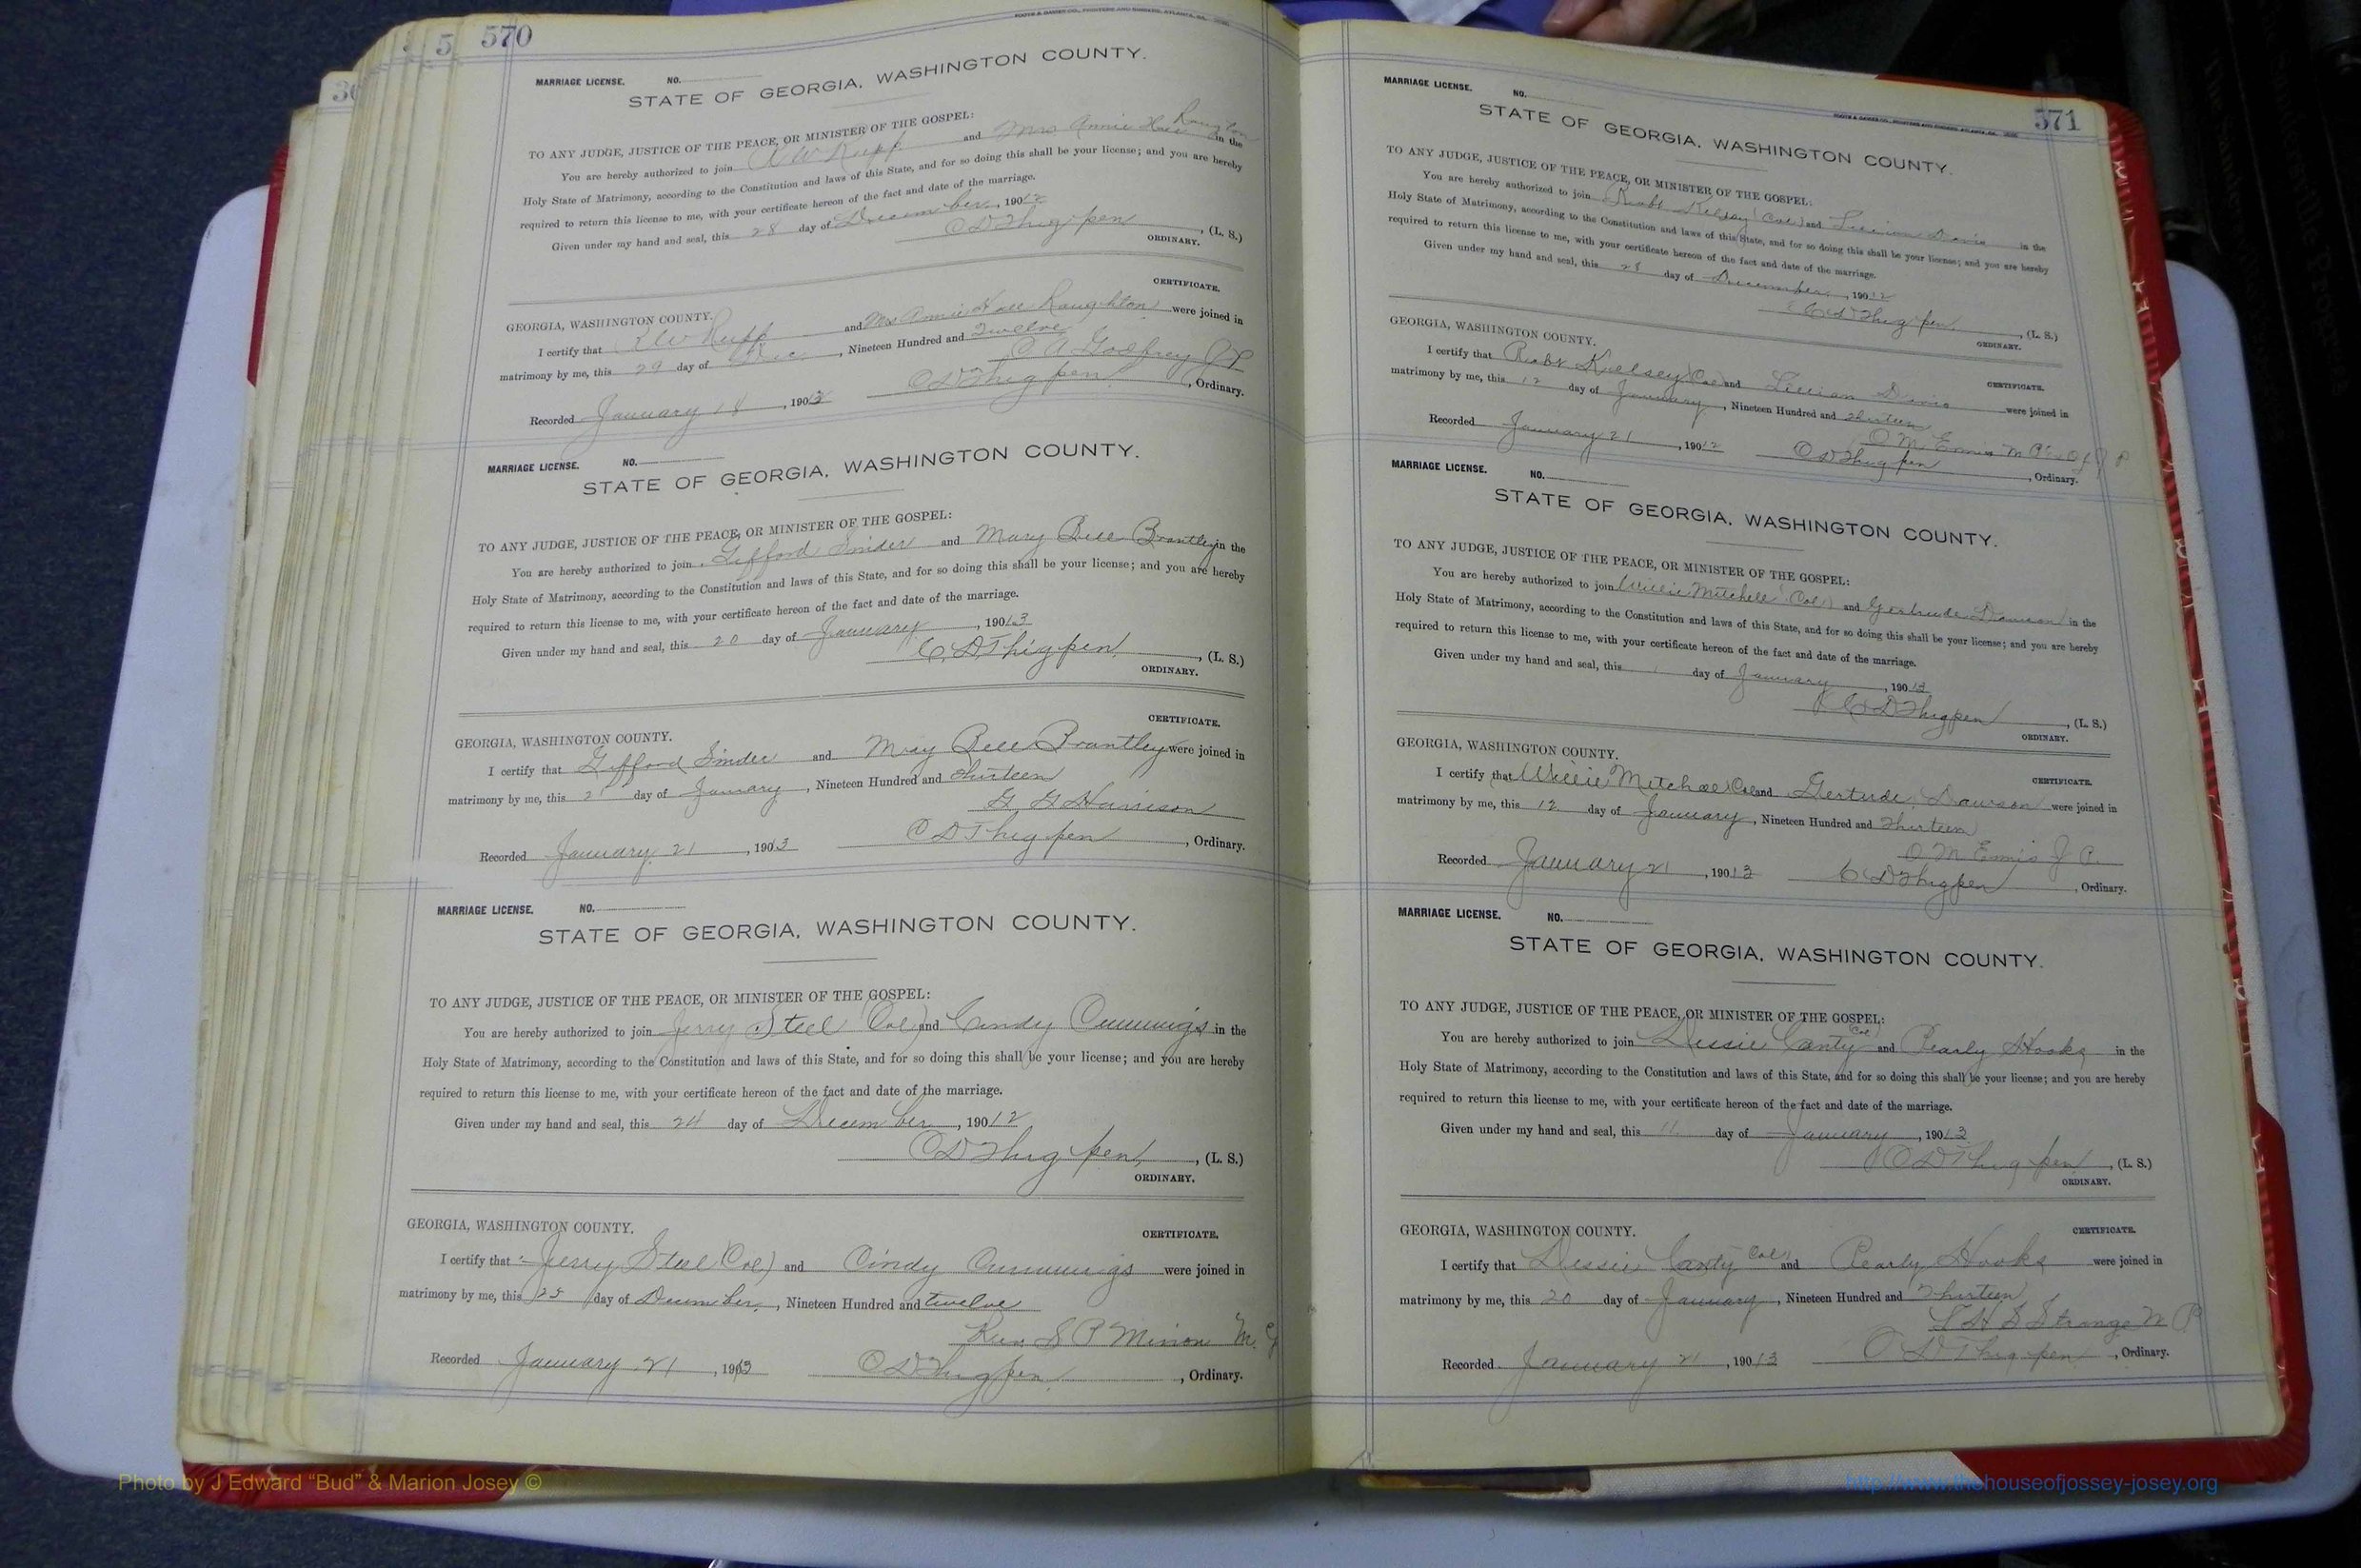 570
5
30
MARRIAGE LICENSE. NO.
STATE OF GEORGIA, WASHINGTON COUNTY.
TO ANY JUDGE, JUSTICE OF THE PEACE, OR MINISTER OF THE GOSPEL:
You are hereby authorized to join and Mrs Annie in the
Holy State of Matrimony, according to the Constitution and laws of this State, and for so doing this shall be your license; and you are hereby
required to return this license to me, with your certificate hereon of the fact and date of the marriage.
Given under my hand and seal, this 28 day of December, 190 12
C D Thigpen, (L. S.)
ORDINARY.
CERTIFICATE.
GEORGIA, WASHINGTON COUNTY.
I certify that and Mrs Annie were joined in
matrimony by me, this 29 day of Dec, Nineteen Hundred and Twelve
C A Godfrey J P
Recorded January 18, 190 13 C D Thigpen, Ordinary.
MARRIAGE LICENSE. NO.
STATE OF GEORGIA, WASHINGTON COUNTY.
TO ANY JUDGE, JUSTICE OF THE PEACE, OR MINISTER OF THE GOSPEL:
You are hereby authorized to join Gifford and Mary Bell Brantley in the
Holy State of Matrimony, according to the Constitution and laws of this State, and for so doing this shall be your license; and you are hereby
required to return this license to me, with your certificate hereon of the fact and date of the marriage.
Given under my hand and seal, this 20 day of January, 190 13
C. D. Thigpen, (L. S.)
ORDINARY.
CERTIFICATE.
GEORGIA, WASHINGTON COUNTY.
I certify that Gifford and Mary Bell Brantley were joined in
matrimony by me, this day of January, Nineteen Hundred and thirteen
G. G. Harrison
Recorded January 21, 190 13 C D Thigpen, Ordinary.
MARRIAGE LICENSE. NO.
STATE OF GEORGIA, WASHINGTON COUNTY.
TO ANY JUDGE, JUSTICE OF THE PEACE, OR MINISTER OF THE GOSPEL:
You are hereby authorized to join Jerry Steel (Col) and Cindy Cummings in the
Holy State of Matrimony, according to the Constitution and laws of this State, and for so doing this shall be your license; and you are hereby
required to return this license to me, with your certificate hereon of the fact and date of the marriage.
Given under my hand and seal, this 24 day of December, 190 12
C D Thigpen, (L. S.)
ORDINARY.
GEORGIA, WASHINGTON COUNTY. CERTIFICATE.
I certify that Jerry Steel (Col) and Cindy Cummings were joined in
matrimony by me, this 25 day of December, Nineteen Hundred and twelve
Rev S P M. G
Recorded January 21, 190 13 C D Thigpen, Ordinary.
571
MARRIAGE LICENSE. NO.
STATE OF GEORGIA, WASHINGTON COUNTY.
TO ANY JUDGE, JUSTICE OF THE PEACE, OR MINISTER OF THE GOSPEL:
You are hereby authorized to join Robt (Col) and Davis in the
Holy State of Matrimony, according to the Constitution and laws of this State, and for so doing this shall be your license; and you are hereby
required to return this license to me, with your certificate hereon of the fact and date of the marriage.
Given under my hand and seal, this 28 day of December, 190 12
C D Thigpen, (L. S.)
ORDINARY.
GEORGIA, WASHINGTON COUNTY.
CERTIFICATE.
I certify that Robt (Col) and Davis were joined in
matrimony by me, this 12 day of January, Nineteen Hundred and thirteen
O M Ennis
Recorded January 21, 190 12 C D Thigpen, Ordinary.
MARRIAGE LICENSE. NO.
STATE OF GEORGIA, WASHINGTON COUNTY.
TO ANY JUDGE, JUSTICE OF THE PEACE, OR MINISTER OF THE GOSPEL:
You are hereby authorized to join Willie Mitchell (Col) and Gertrude Dawson in the
Holy State of Matrimony, according to the Constitution and laws of this State, and for so doing this shall be your license; and you are hereby
required to return this license to me, with your certificate hereon of the fact and date of the marriage.
Given under my hand and seal, this day of January, 190 13
C D Thigpen, (L. S.)
ORDINARY.
GEORGIA, WASHINGTON COUNTY.
CERTIFICATE.
I certify that Willie Mitchael Col and Gertrude Dawson were joined in
matrimony by me, this 12 day of January, Nineteen Hundred and Thirteen
O M Ennis J P.
Recorded January 21, 190 13 C D Thigpen, Ordinary.
MARRIAGE LICENSE. NO.
STATE OF GEORGIA, WASHINGTON COUNTY.
TO ANY JUDGE, JUSTICE OF THE PEACE, OR MINISTER OF THE GOSPEL:
You are hereby authorized to join Dessie Canty (Col) and Pearly Hooks in the
Holy State of Matrimony, according to the Constitution and laws of this State, and for so doing this shall be your license; and you are hereby
required to return this license to me, with your certificate hereon of the fact and date of the marriage.
Given under my hand and seal, this 11 day of January, 190 13
C D Thigpen, (L. S.)
ORDINARY.
GEORGIA, WASHINGTON COUNTY. CERTIFICATE.
I certify that Dessie Canty (Col) and Pearly Hooks were joined in
matrimony by me, this 20 day of January, Nineteen Hundred and Thirteen
Strange
Recorded January 21, 190 13 C D Thigpen, Ordinary.
Photo by J Edward “Bud” & Marion Josey ©
http://www.thehouseofjossey-josey.org